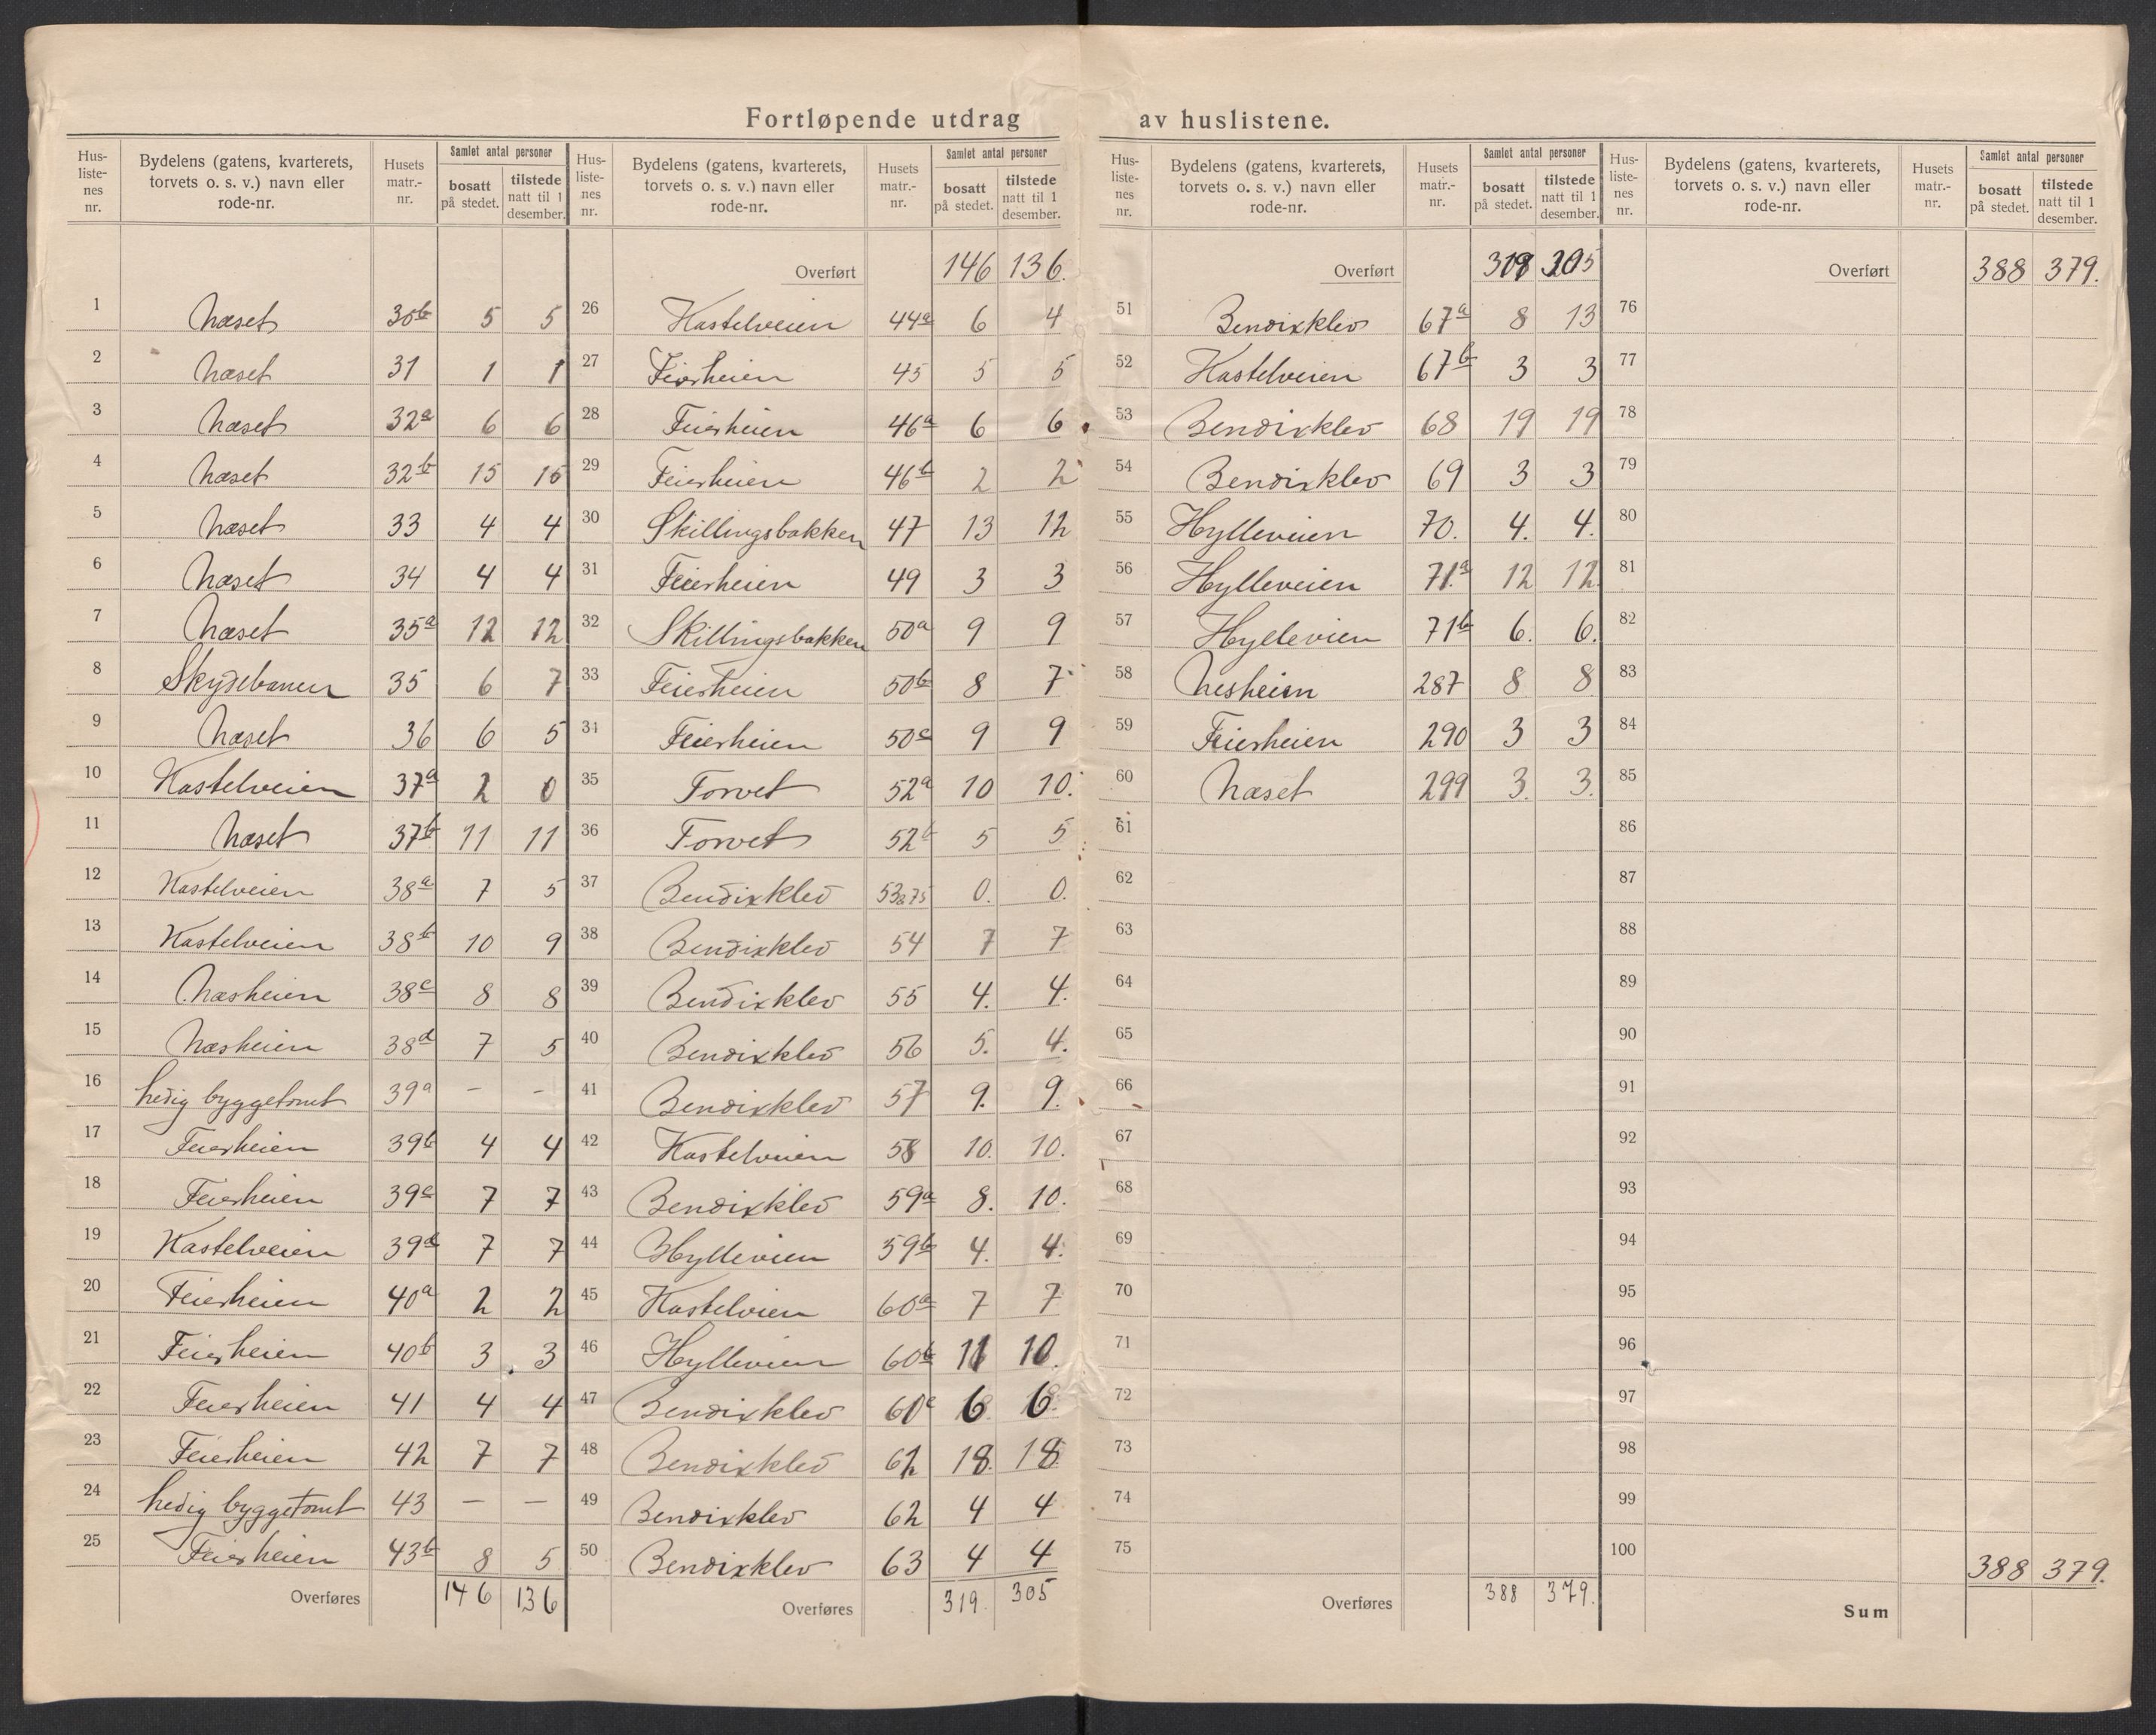 Fortløpende utdrag av huslistene.
Hus-listenes nr. | Bydelens (gatens, kvarterets, torvets o. s. v.) navn eller rode-nr. | Husets matr.-nr. | Samlet antal personer bosatt på stedet. | tilstede natt til 1 desember.
1 Næset 30b 5 5
2 Næset 31 1 1
3 Næset 32a 6 6
4 Næset 32b 15 15
5 Næset 33 4 4
6 Næset 34 4 4
7 Næset 35a 12 12
8 Skydebanen 35 6 7
9 Næset 36 6 5
10 Kastelveien 37a 2 0
11 Næset 37b 11 11
12 Kastelveien 38a 7 5
13 Kastelveien 38b 10 9
14 Næsheien 38c 8 8
15 Næsheien 38d 7 5
16 ledig byggetomt 39a - -
17 Feierheien 39b 4 4
18 Feierheien 39c 7 7
19 Kastelveien 39d 7 7
20 Feierheien 40a 2 2
21 Feierheien 40b 3 3
22 Feierheien 41 4 4
23 Feierheien 42 7 7
24 ledig byggetomt 43 — —
25 Feierheien 43b 8 5
Overføres 146 136
Hus-listenes nr. | Bydelens (gatens, kvarterets, torvets o. s. v.) navn eller rode-nr. | Husets matr.-nr. | Samlet antal personer bosatt på stedet. | tilstede natt til 1 desember.
Overført 146 136.
26 Kastelveien 44a 6 4
27 Feierheien 45 5 5
28 Feierheien 46a 6 6
29 Feierheien 46b 2 2
30 Skillingsbakken 47 13 12
31 Feierheien 49 3 3
32 Skillingsbakken 50a 9 9
33 Feierheien 50b 8 7
34 Feierheien 50c 9 9
35 Torvet 52a 10 10.
36 Torvet 52b 5 5
37 Bendixklev 53&75 0. 0.
38 Bendixklev 54 7 7
39 Bendixklev 55 4. 4.
40 Bendixklev 56 5. 4.
41 Bendixklev 57 9. 9.
42 Kastelveien 58 10. 10.
43 Bendixklev 59a 8. 10.
44 Hylleveien 59b 4. 4.
45 Kastelveien 60a 7 7
46 Hylleveien 60b 11 10.
47 Bendixklev 60c 6 6
48 Bendixklev 61 18. 18
49 Bendixklev 62 4 4
50 Bendixklev 63 4 4
Overføres 319. 305
Hus-listenes nr. | Bydelens (gatens, kvarterets, torvets o. s. v.) navn eller rode-nr. | Husets matr.-nr. | Samlet antal personer bosatt på stedet. | tilstede natt til 1 desember.
Overført 319 305
51 Bendixklev 67a 8 13
52 Kastelveien 67b 3 3
53 Bendixklev 68 19 19
54 Bendixklev 69 3 3
55 Hylleveien 70. 4. 4.
56 Hylleveien 71.a 12 12
57 Hylleveien 71b 6. 6.
58 Nesheien 287 8 8
59 Feierheien 290 3 3
60 Næset 299 3. 3.
61
62
63
64
65
66
67
68
69
70
71
72
73
74
75
Overføres 388 379.
Hus-listenes nr. | Bydelens (gatens, kvarterets, torvets o. s. v.) navn eller rode-nr. | Husets matr.-nr. | Samlet antal personer bosatt på stedet. | tilstede natt til 1 desember.
Overført 388 379.
76
77
78
79
80
81
82
83
84
85
86
87
88
89
90
91
92
93
94
95
96
97
98
99
100
Sum 388 379.